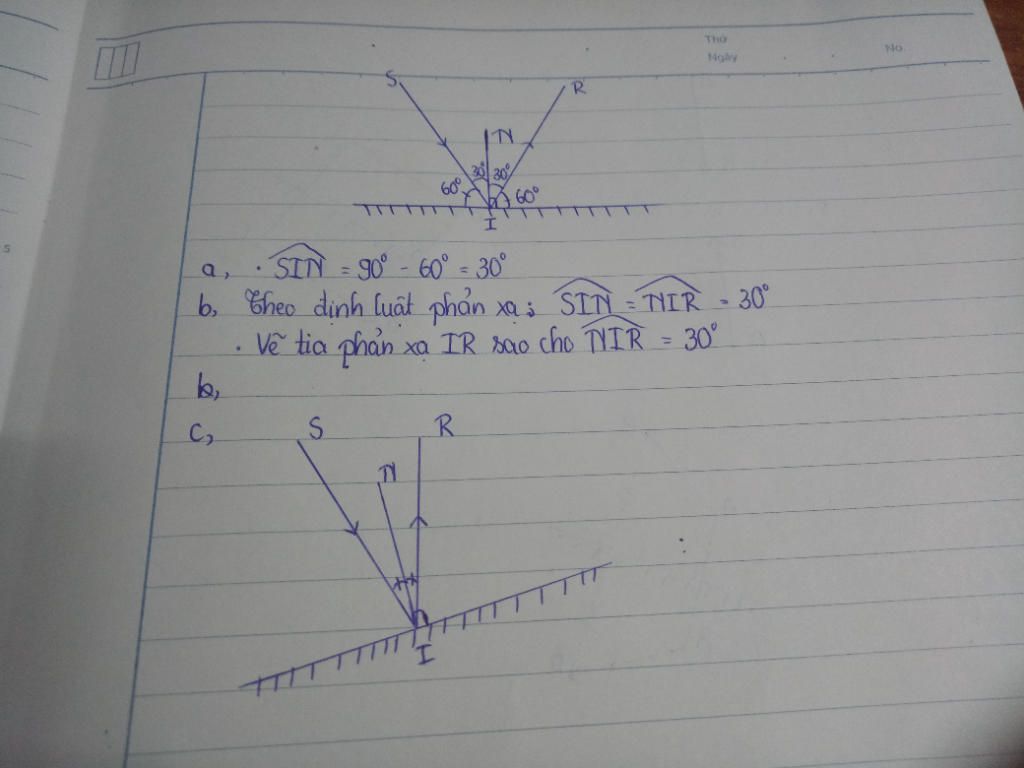 Thứ
Ngày
No.
S R
N
60° 30° 30° 60°
I
a, · SIN = 90° - 60° = 30°
b, Theo định luật phản xạ: SIN = NIR = 30°
· Vẽ tia phản xạ IR sao cho NIR = 30°
b,
c, S R
N
I